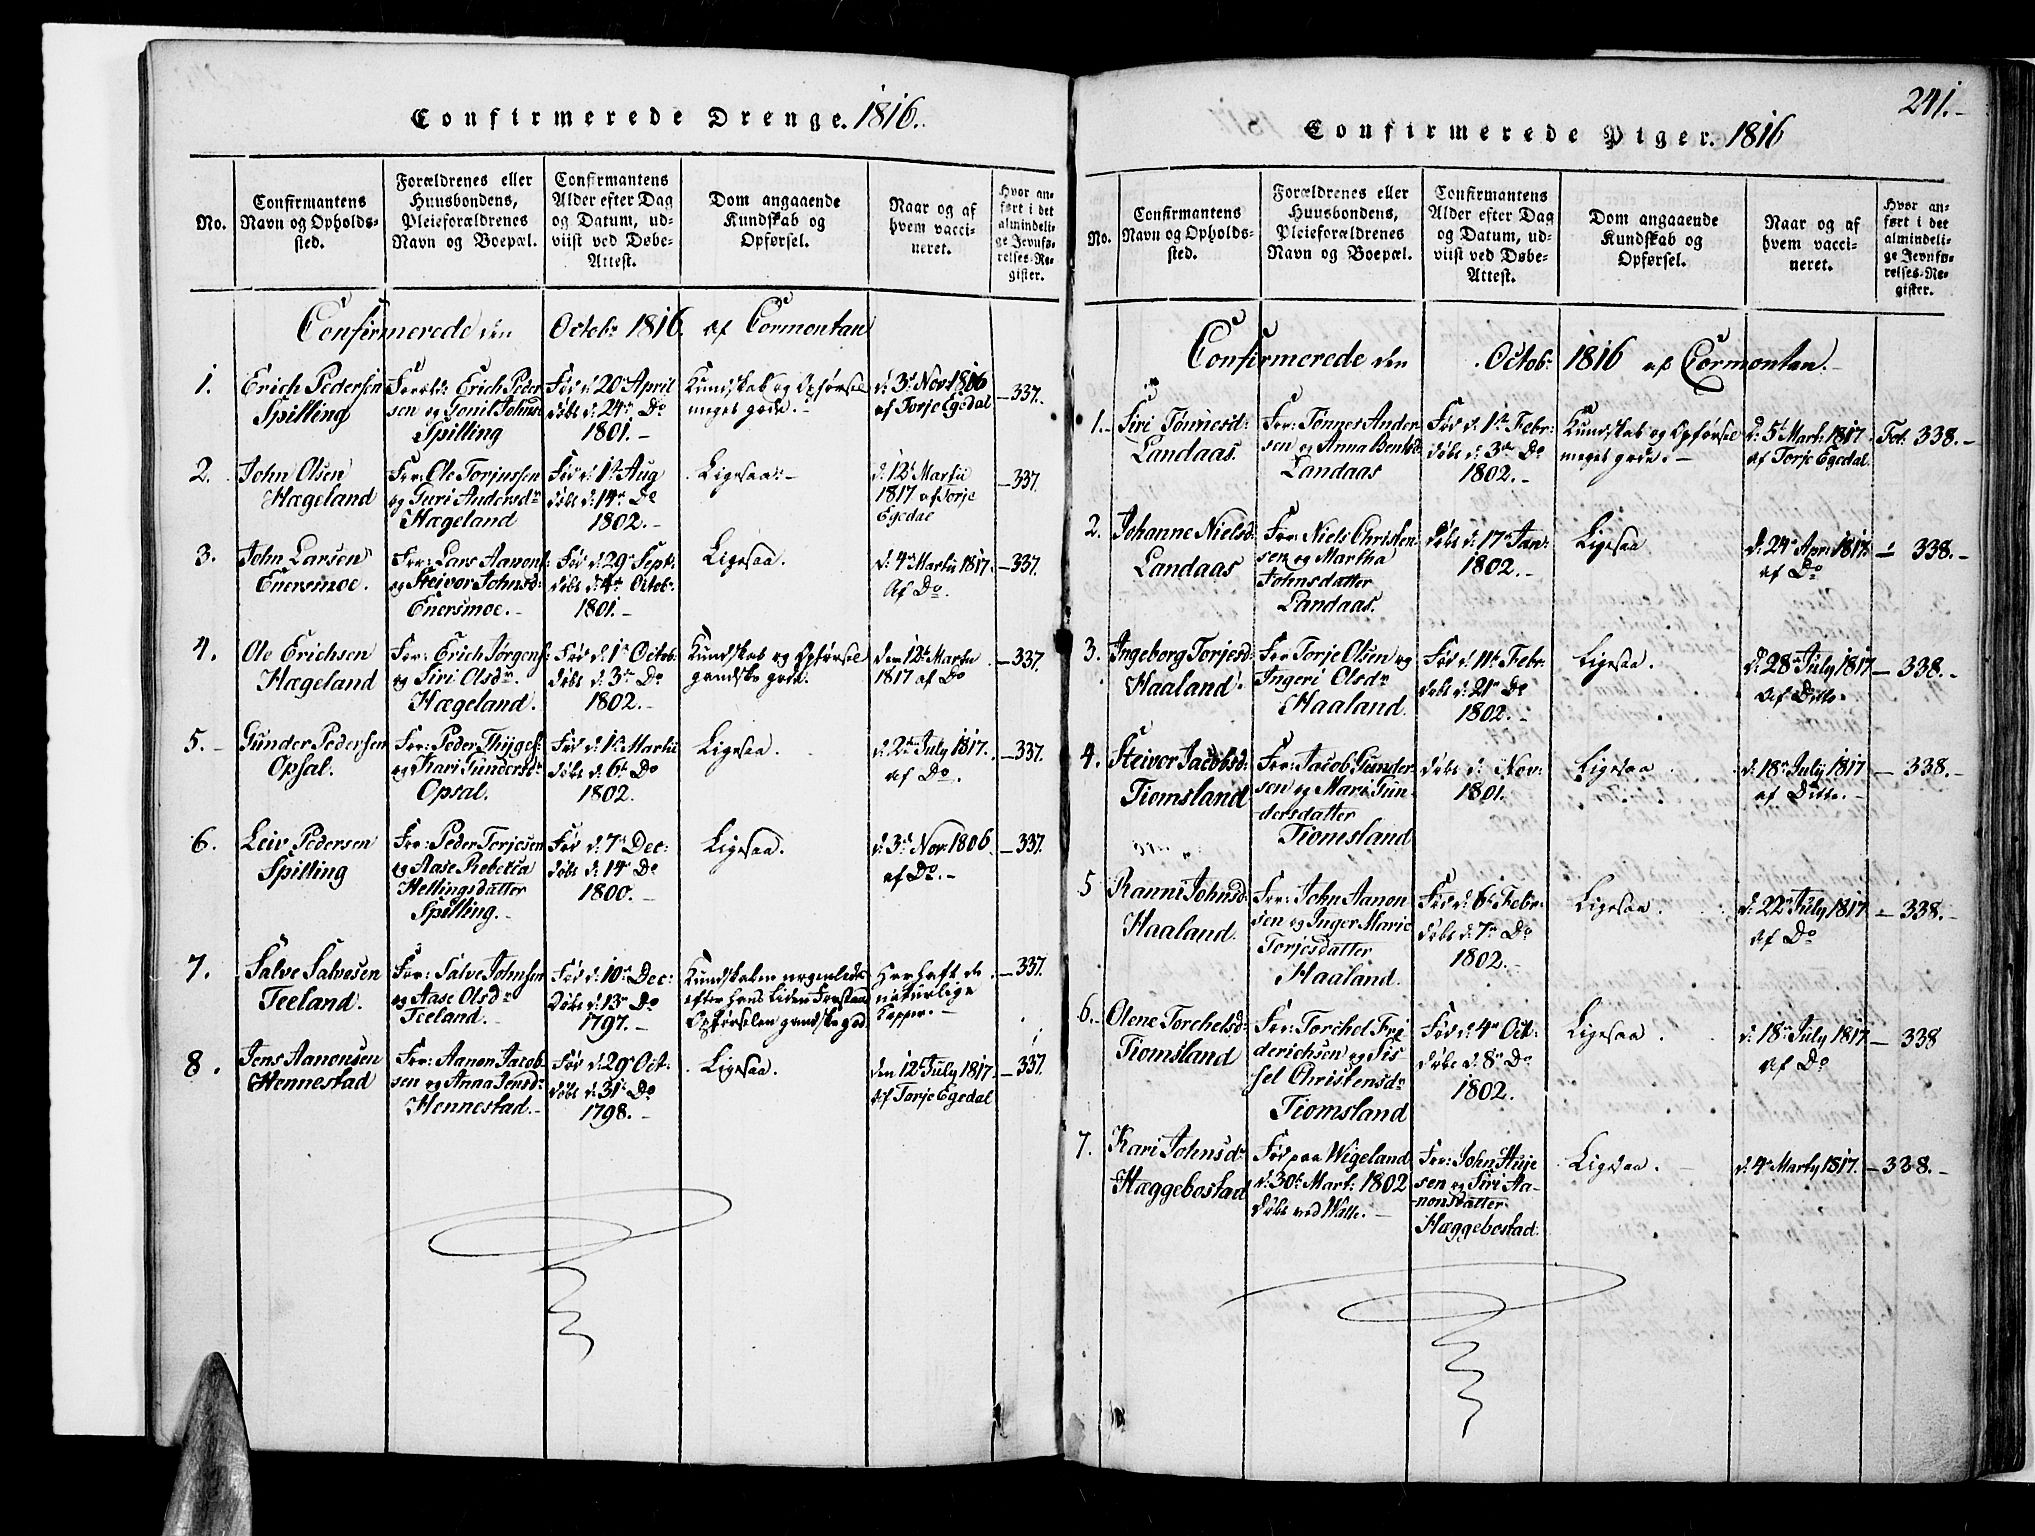 Confirmerede Drenge. 1816.
No.
Confirmantens
Navn og Opholds-
sted.
Forældrenes eller
Huusbondens,
Pleieforældrenes
Navn og Boepæl.
Confirmantens
Alder efter Dag
og Datum, ud-
viist ved Døbe-
Attest.
Dom angaaende
Kundskab og
Opførsel.
Naar og af
hvem vacci-
neret.
Hvor an-
ført i det
almindeli-
ge Jevnfø-
relses-Re-
gister.
Confirmerede den Octobr 1816. af Cormontan
1.
Erich Pedersen
Spilling
Erich Peder
sen og Gonil Johns
Spilling
Fød d: 20 April
døbt d. 24 Do
1801.-
Kundskab og Opførsel
meget gode.-
d: 3 Nov: 1806
af Torje Egedal
337.
2.
John Olsen
Hægeland
For: Ole Torjussen
og Guri Andersdr
Hægeland
Fød d: 1te Aug
døbt d. 14 Do
1802.-
Ligesaa.-
d: 12 Martii
1817 af Torje
Egedal
-337.
3.
John Larsen
Enersmoe.
For: Lars Aanons
og Steivor Johnsd:
Enersmoe.-
Fød d: 29 Sept:
døbt d. 4 Octob:
1801.-
Ligesaa.
d: 4 Martii 1817.
Af Do.
-337.
4.
Ole Erichsen
Hægeland
For: Erich Jørgens
og Siri Olsdr.
Hægeland.
Fød d. 1 Octob:
døbt d. 3 Do
1802.-
Kundskab og Opførsel
gandske gode.
den 12 Martii
1817 af Do
-337.
5.-
Gunder Pedersen
Opsal.
For: Peder Thÿges:
og Kari Gundersdr
Opsal.
Fød d. 1 Martii
døbt d. 6 Do
1802.
Ligesaa.
d. 2 July 1817.
af Do.
-337.
6.
Leiv Pedersen
Spilling
For: Peder Terjesen
og Aase Rebecca
Hellingsdatter
Spilling.-
Fød d: 7 Dec:
døbt d. 14 Do
1800.-
Ligesaa.
d. 3 Nov: 1806
af Do.-
-337.
7.
Salve Salvesen
Teeland.
For: Salve Johnsen
og Aase Olsdr
Teeland.-
Fød d. 10 Dec:
Døbt d. 13 Do
1797.-
Kundskaben nogenledes
efter hans liden Forstand
Opførselen gandske god
Har haft de
naturlige
Kopper.-
-337.
8.
Jens Aanonsen
Hennestad
For: Aanon Jacob
sen og Anna Jensdr
Hennestad.-
Fød d: 29 Oct:
døbt d. 31 Do
1798.-
Ligesaa.
den 12 July 1817.
af Torje Egedal
-337.
241.-
Confirmerede Piger. 1816
No.
Confirmantens
Navn og Opholds-
sted.
Forældrenes eller
Huusbondens,
Pleieforældrenes
Navn og Boepæl.
Confirmantens
Alder efter Dag
og Datum, ud-
viist ved Døbe-
Attest.
Dom angaaende
Kundskab og
Opførsel.
Naar og af
hvem vacci-
neret.
Hvor an-
ført i det
almindeli-
ge Jevnfø-
relses-Re-
gister.
Confirmerede den Octob: 1816 af Cormontan.-
1.-
Siri Tönnesd:
Landaas
For: Tønnes Ander
sen og Anna Bentsd
Landaas
Fød d. 1te Febr:
døbt d. 3 Do
1802.-
Kundskab og Opførsel
meget gode.-
d: 5 Mart: 1817
af Torje Egedal
Fol: 338.-
2.
Johanne Nielsd
Landaas
For: Niels Christen
sen og Martha
Johnsdatter
Landaas.
døbt d: 17 Jan:
1802.-
Ligesaa
d. 24 Apr: 1817.
af Do
338.-
3.
Ingeborg Torjesd:
Haaland.
For Torje Olsen og
Ingeri Olsdr
Haaland.
Fød d. 11 Febr:
døbt d. 21 Do
1802.-
Ligesaa.
d. 28 July 1817
af Ditto.
-338.-
4.
Steivor Jacobsd:
Tiomsland
For: Jacob Gunder
sen og Mari Gun
dersdatter
Tiomsland
døbt d. Nov:
1801.
Ligesaa.
d: 18 July 1817
af Ditto.-
-338.-
5
Ranni Johnsd:
Haaland.
For: John Aanon
sen og Inger Marie
Torjesdatter
Haaland.
Fød d. 6 Febr:
døbt d. 7 Do
1802.-
Ligesaa.
d: 22 July 1817
af Do
338.-
6.
Olene Torchelsd:
Tiomsland
For: Torchel Fri
derichsen og Sis
sel Christensdr
Tiomsland
Fød d: 4 Oct:
døbt d. 8 Do
1802.
Ligesaa
d. 18 July 1817
af Do
-338
7.
Kari Johnsdr
Hæggebostad
Fød paa Wigeland
d: 30 Mart: 1802
døbt ved Walle.-
For: John Huje
sen og Siri Aa-
nonsdatter
Hæggebostad.
Ligesaa.
d. 4 Marty 1817.
-338.-